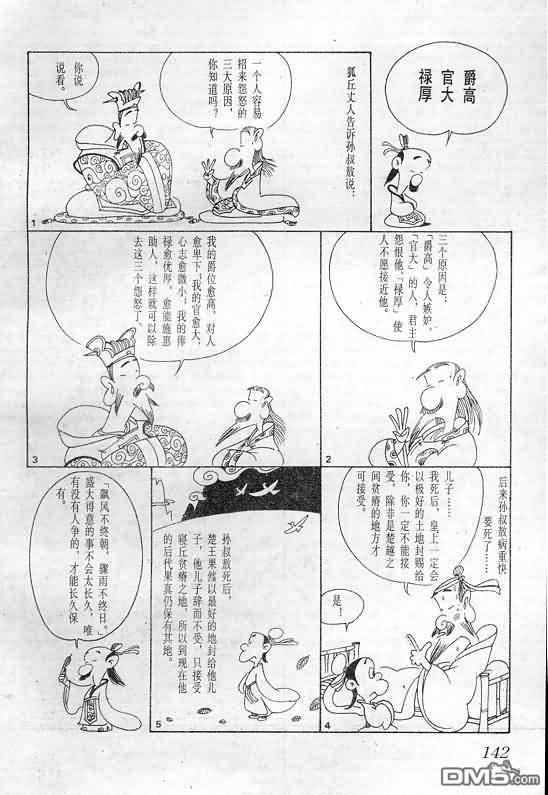 爵高
官大
禄厚
狐丘丈人告诉孙叔敖说：
一个人容易
招来怨怒的
三大原因，
你知道吗？
你说
说看。
1
三个原因是：
「爵高」令人嫉妒，
「官大」的人，君主
怨恨他，「禄厚」使
人不愿接近他。
2
我的爵位愈高，对人
愈卑下；我的官愈大，
心志愈微小；我的俸
禄愈优厚，愈能施惠
助人，这样就可以除
去这三个怨怒了。
3
后来孙叔敖病重快
要死了……
儿子……
我死后，皇上一定会
以极好的土地封赐给
你，你一定不能接
受，除非是楚越之
间贫瘠的地方才
可接受。
是！
4
孙叔敖死后，
楚王果然以最好的地封给他儿
子，他儿子辞而不受，只接受
寝丘贫瘠之地，所以到现在他
的后代果真仍保有其地。
5
「飘风不终朝，骤雨不终日。」
盛大得意的事不会太长久，唯
有没有人争的，才能长久保
有。
142
DM5.com